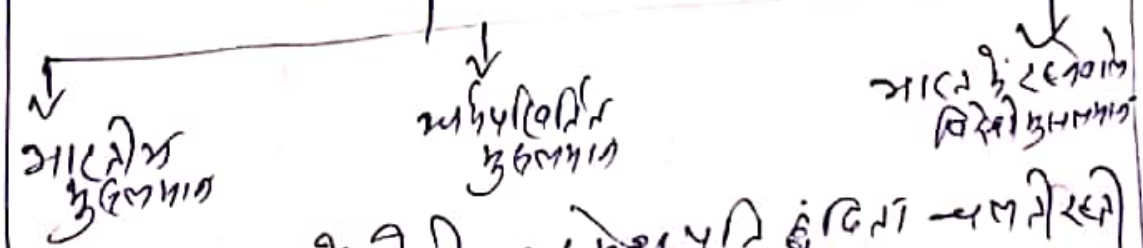 भारतीय
मुसलमान
धर्मपरिवर्तित
मुसलमान
भारत में रहनेवाले
विदेशी मुसलमान
प्रति हिंसा चलती रहती